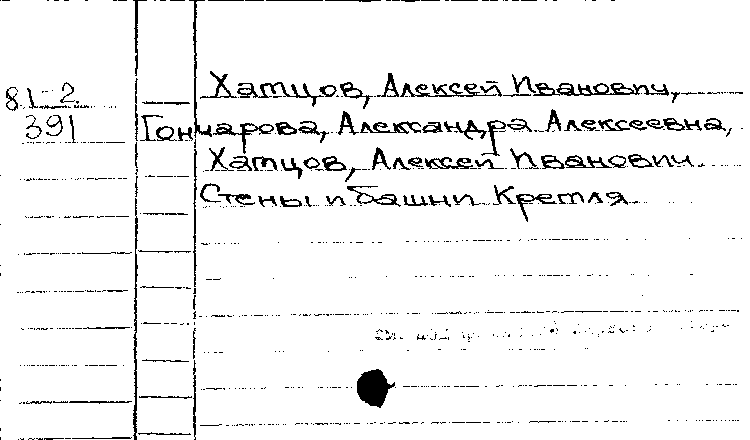 81-2
391
Хамцов, Алексей Иванович,
Гончарова, Александра Алексеевна,
Хамцов, Алексей Иванович.
Стены и башни Кремля
см. под